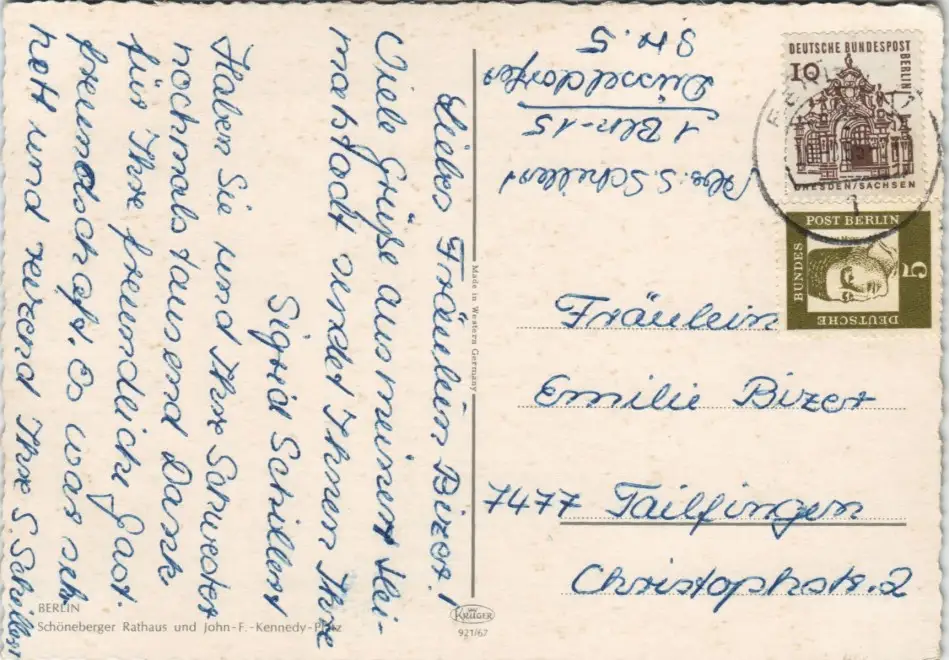 Liebes Fräulein Bizer!
Viele Grüße aus meiner Hei-
matstadt sendet Ihnen Ihre
Sigrid Schillert
Haben Sie und Ihre Schwester
nochmals tausend Dank
für Ihre freundliche Gast-
freundschaft. Es war sehr
nett und  Ihre S Schillert
Abs: S. Schillert
1 Bln-15
Düsseldorfer
Str. 5
DEUTSCHE BUNDESPOST
BERLIN
10
DRESDEN/SACHSEN
POST BERLIN
DEUTSCHE
BUNDES
5
Fräulein
Emilie Bizer
7477 Tailfingen
Christophstr. 2
Made in Western Germany
KRÜGER
921/67
BERLIN
Schöneberger Rathaus und John-F.-Kennedy-Platz